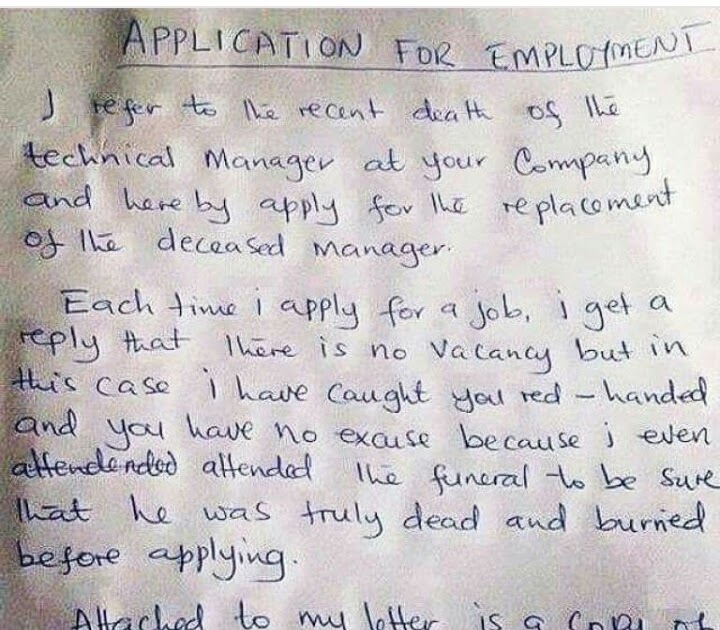 APPLICATION FOR EMPLOYMENT
I refer to the recent death of the
technical Manager at your Company
and here by apply for the replacement
of the deceased manager.
Each time i apply for a job, i get a
reply that there is no vacancy but in
this case i have caught you red-handed
and you have no excuse because i even
attendended attended the funeral to be sure
that he was truly dead and burried
before applying.
Attached to my letter is a copy of